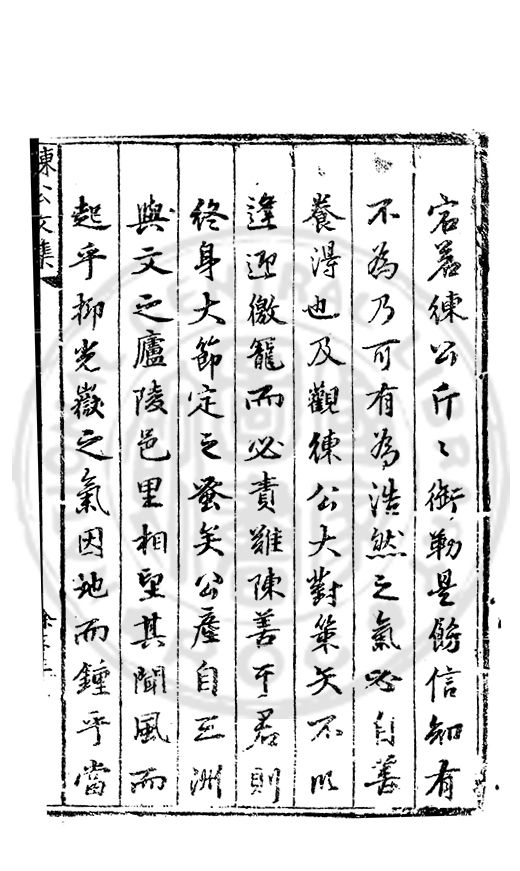 宕若練公斤〻銜勒是飭信知有
不為乃可有為浩然之氣必自善
養得也及觀練公大對策矢不以
逢迎徼寵而必責難陳善于君則
終身大節定之蚤矣公產自三洲
與文之廬陵邑里相望其聞風而
起乎抑光嶽之氣因地而鍾乎當
練公文集